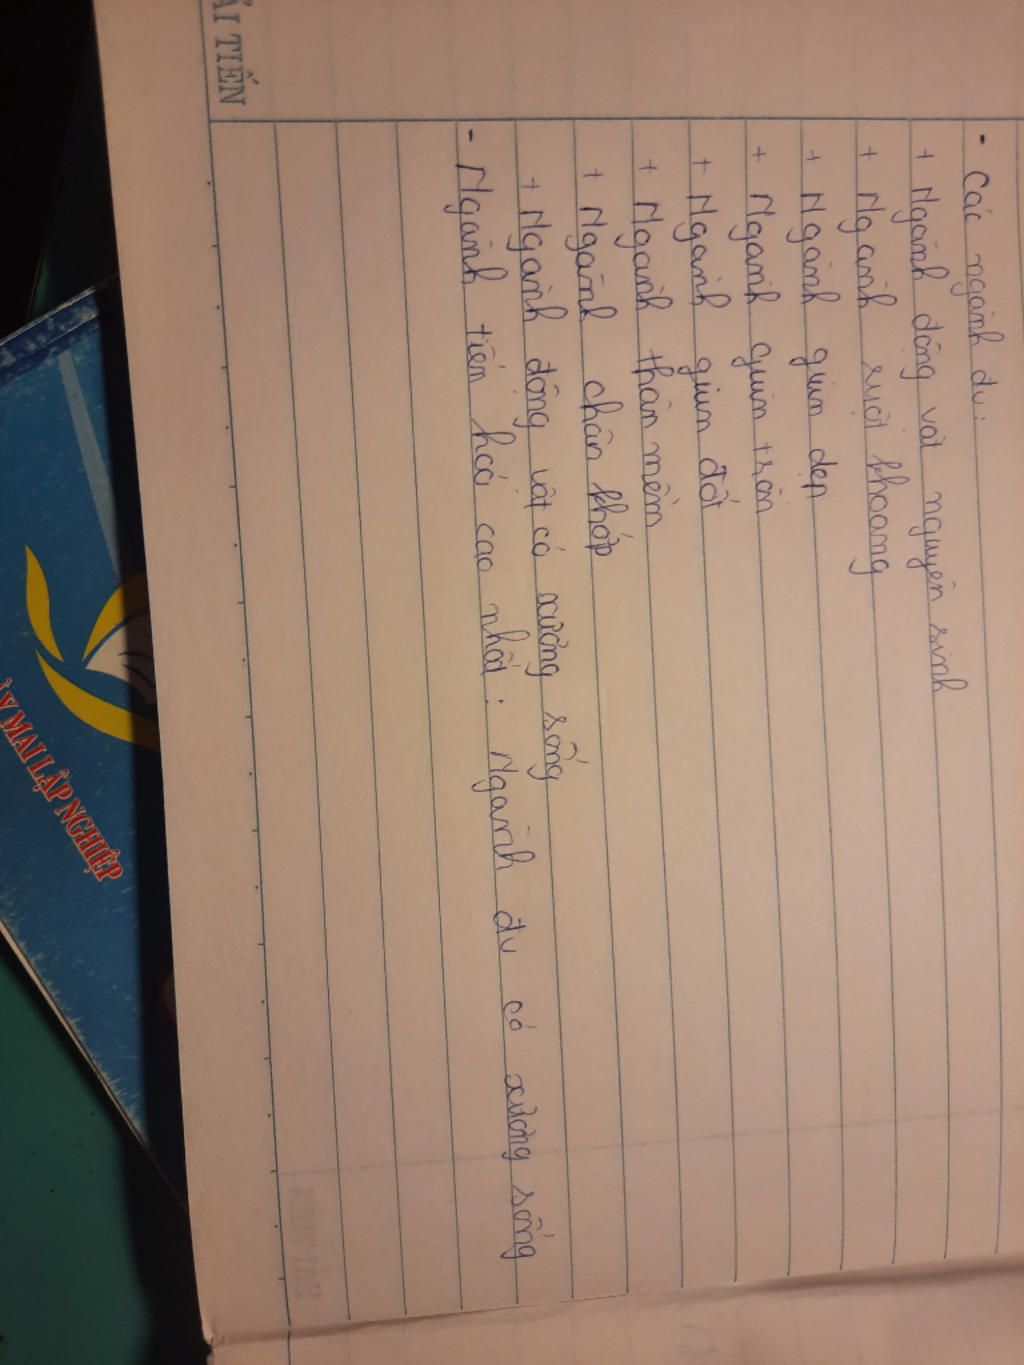 - Các ngành đv:
+ Ngành động vật nguyên sinh
+ Ngành ruột khoang
+ Ngành giun dẹp
+ Ngành giun tròn
+ Ngành giun đốt
+ Ngành thân mềm
+ Ngành chân khớp
+ Ngành động vật có xương sống
- Ngành tiến hoá cao nhất: Ngành đv có xương sống
ẢI TIẾN
MAI LẬP NGHIỆP